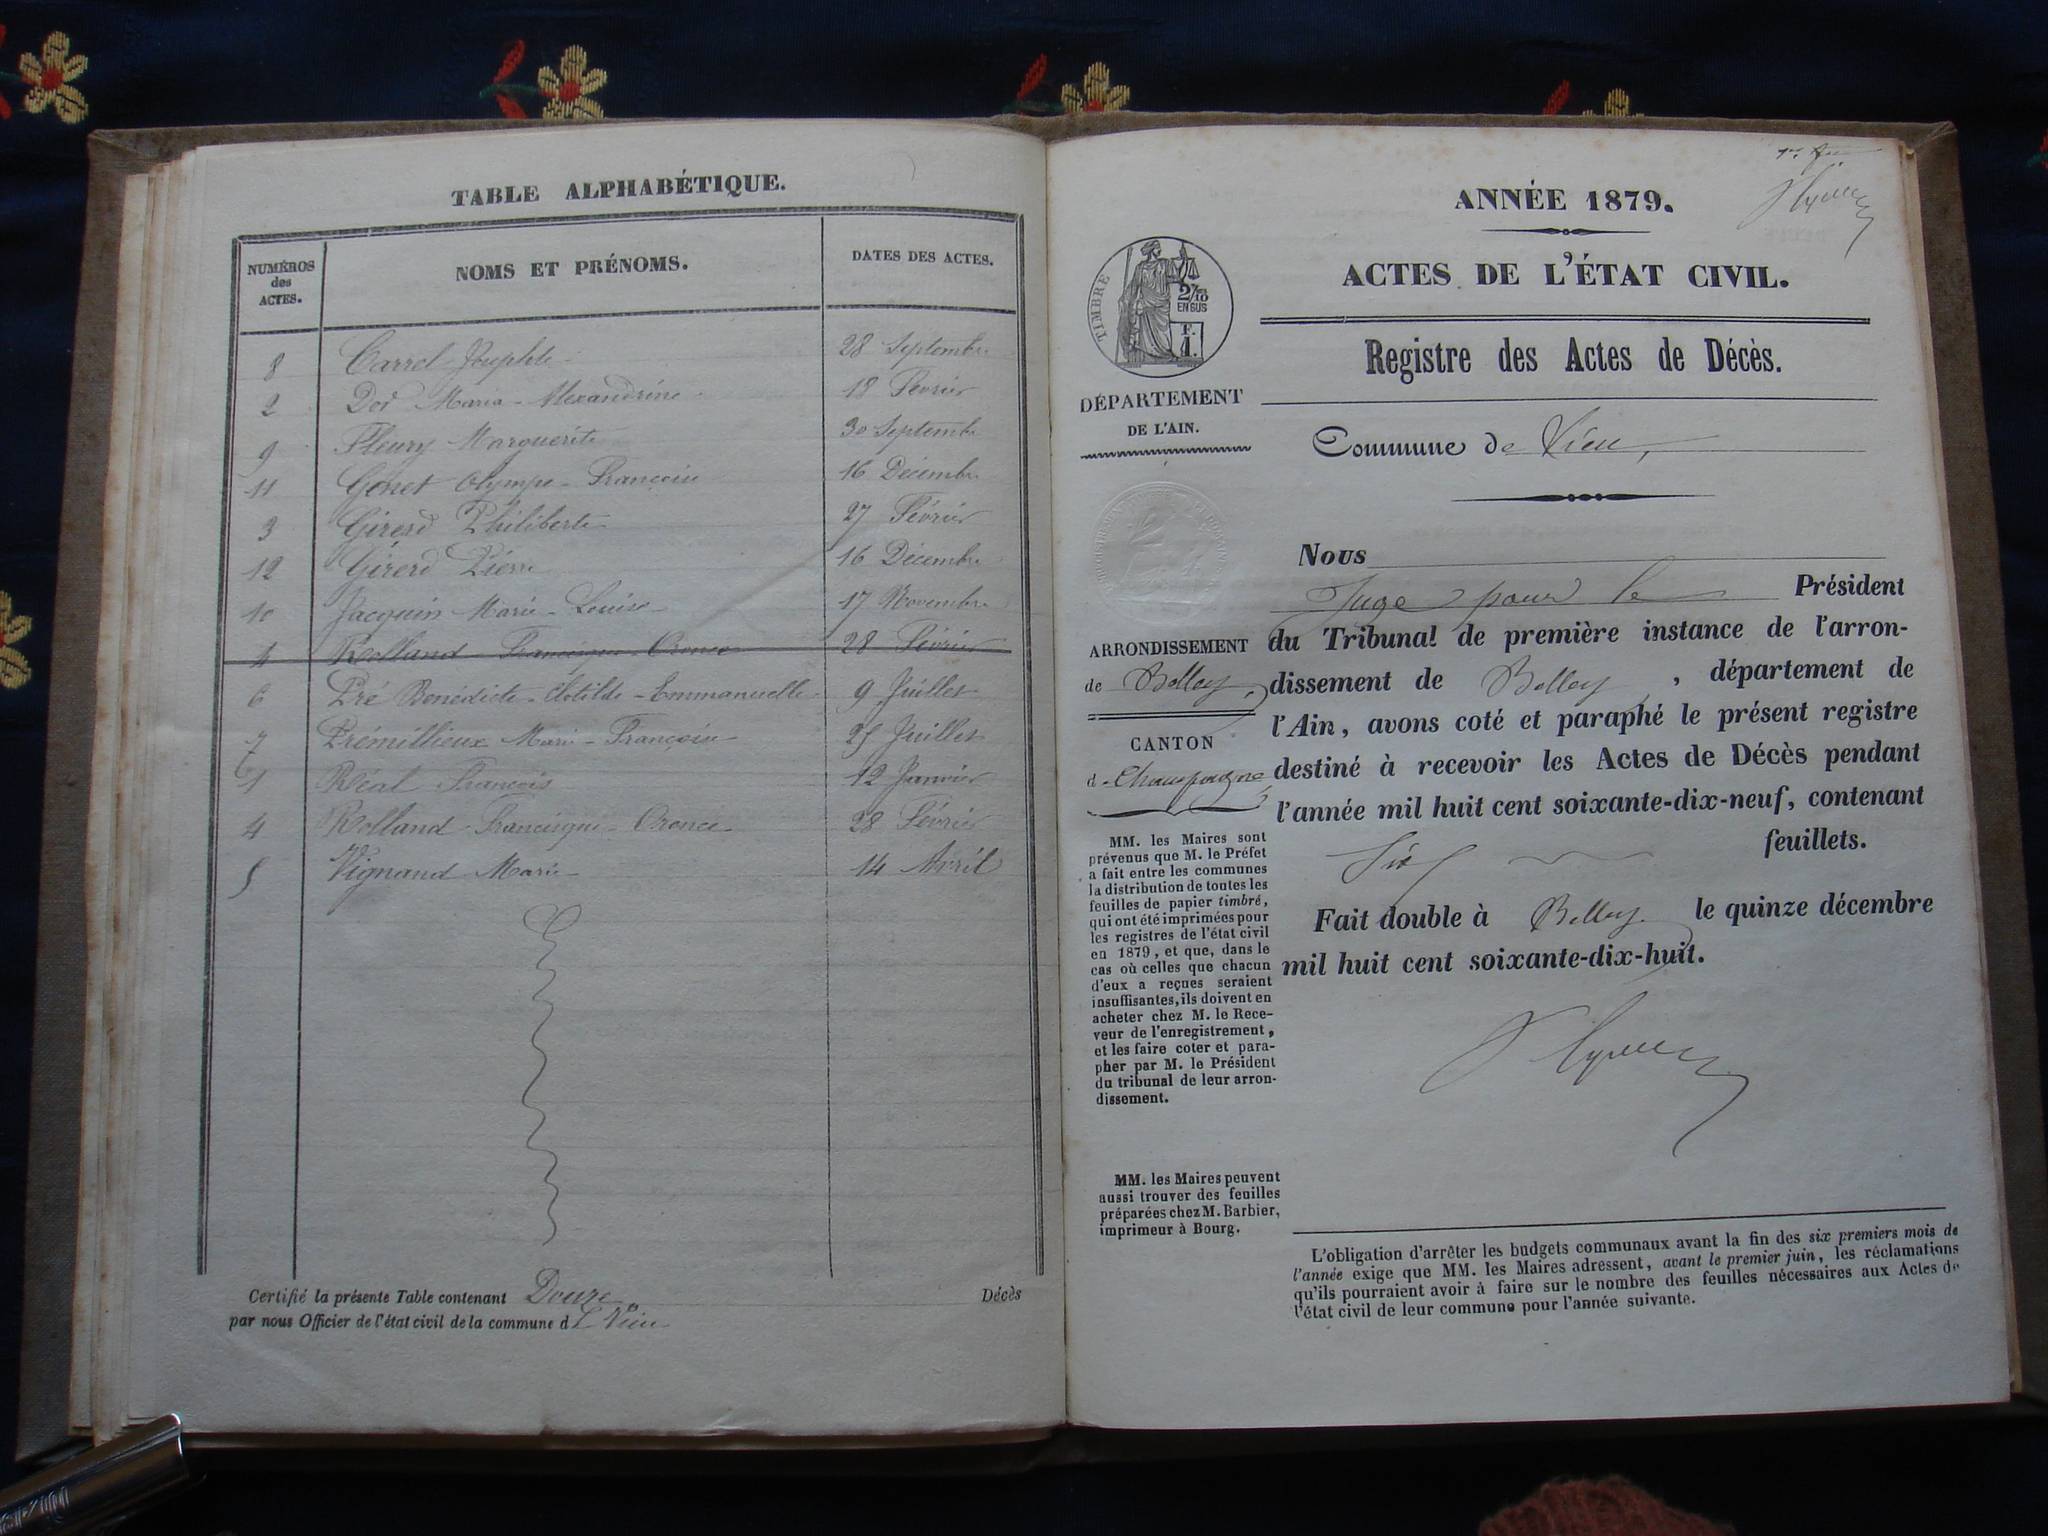 TABLE ALPHABÉTIQUE.
NUMÉROS des ACTES. NOMS ET PRÉNOMS. DATES DES ACTES.
8 Carrel Josephte 28 Septembre
2 Dor Maria-Alexandrine 18 Février
9 Fleury Marguerite 30 Septembre
11 Gonet Olympe-Françoise 16 Décembre
3 Girerd Philiberte 27 Février
12 Girerd Pierre 16 Décembre
10 Jacquin Marie-Louise 17 Novembre
4 Rolland Francisque Oronce 28 Février
6 Pré Benédicte-Clotilde-Emmanuelle 9 Juillet
7 Prémillieux Marie-Françoise 25 Juillet
1 Réal François 12 Janvier
4 Rolland Francisque-Oronce 28 Février
5 Vignand Marie 14 Avril
Certifié la présente Table contenant Douze Décès
par nous Officier de l'état civil de la commune d e Vieu
ANNÉE 1879.
ACTES DE L'ÉTAT CIVIL.
TIMBRE
2 2/10 EN SUS
F. 1.
Registre des Actes de Décès.
DÉPARTEMENT
DE L'AIN.
Commune de Vieu,
Nous
Juge pour le Président
du Tribunal de première instance de l'arron-
dissement de Belley, département de
l'Ain, avons coté et paraphé le présent registre
destiné à recevoir les Actes de Décès pendant
l'année mil huit cent soixante-dix-neuf, contenant
Six feuillets.
Fait double à Belley le quinze décembre
mil huit cent soixante-dix-huit.
ARRONDISSEMENT
de Belley,
CANTON
d. Champagne
MM. les Maires sont
prévenus que M. le Préfet
a fait entre les communes
la distribution de toutes les
feuilles de papier timbré,
qui ont été imprimées pour
les registres de l'état civil
en 1879, et que, dans le
cas où celles que chacun
d'eux a reçues seraient
insuffisantes, ils doivent en
acheter chez M. le Rece-
veur de l'enregistrement,
et les faire coter et para-
pher par M. le Président
du tribunal de leur arron-
dissement.
MM. les Maires peuvent
aussi trouver des feuilles
préparées chez M. Barbier,
imprimeur à Bourg.
L'obligation d'arrêter les budgets communaux avant la fin des six premiers mois de
l'année exige que MM. les Maires adressent, avant le premier juin, les réclamations
qu'ils pourraient avoir à faire sur le nombre des feuilles nécessaires aux Actes de
l'état civil de leur commune pour l'année suivante.